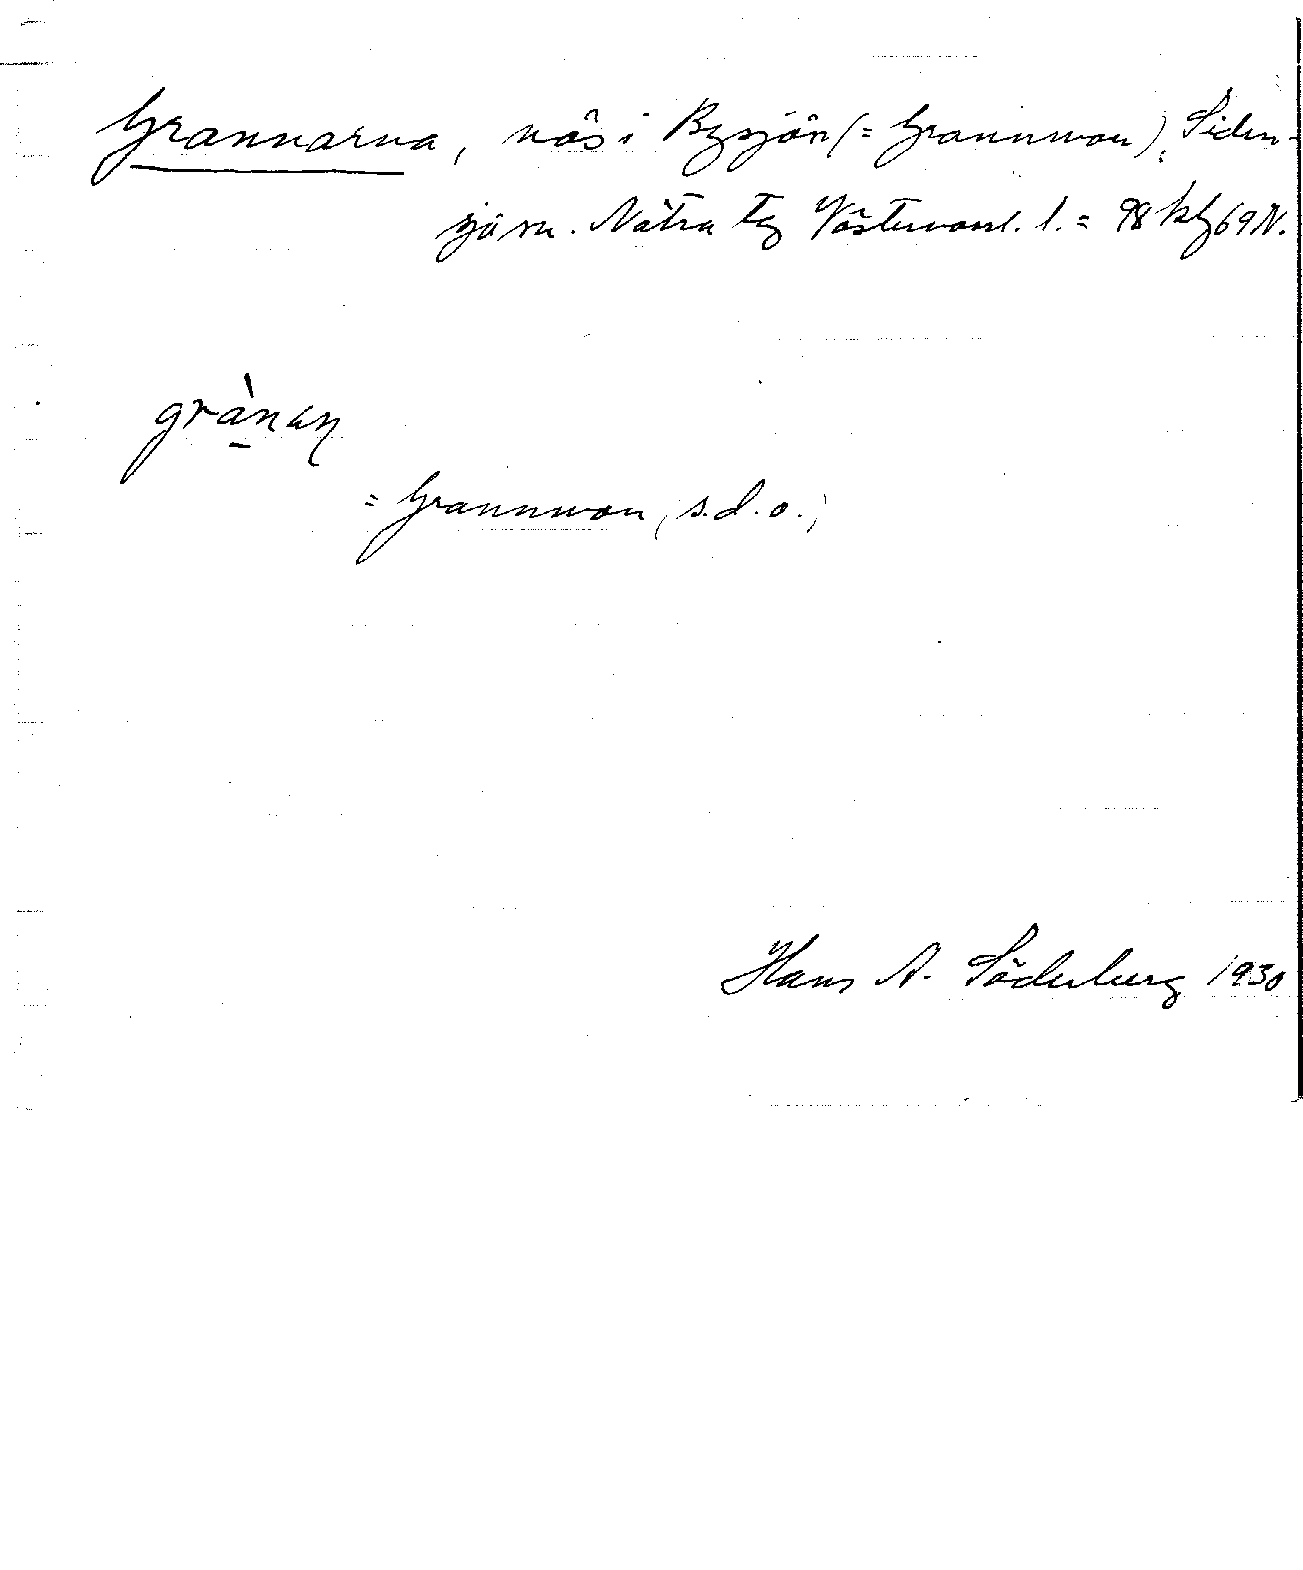 Grannarna, näs i Bysjön (= Grannmon), Siden-
sjö sn. Nätra tg Västernorrl. l. = 98 kbf 69 N.
grànan
= Grannmon, s.d.o.,
Hans A. Söderberg 1930